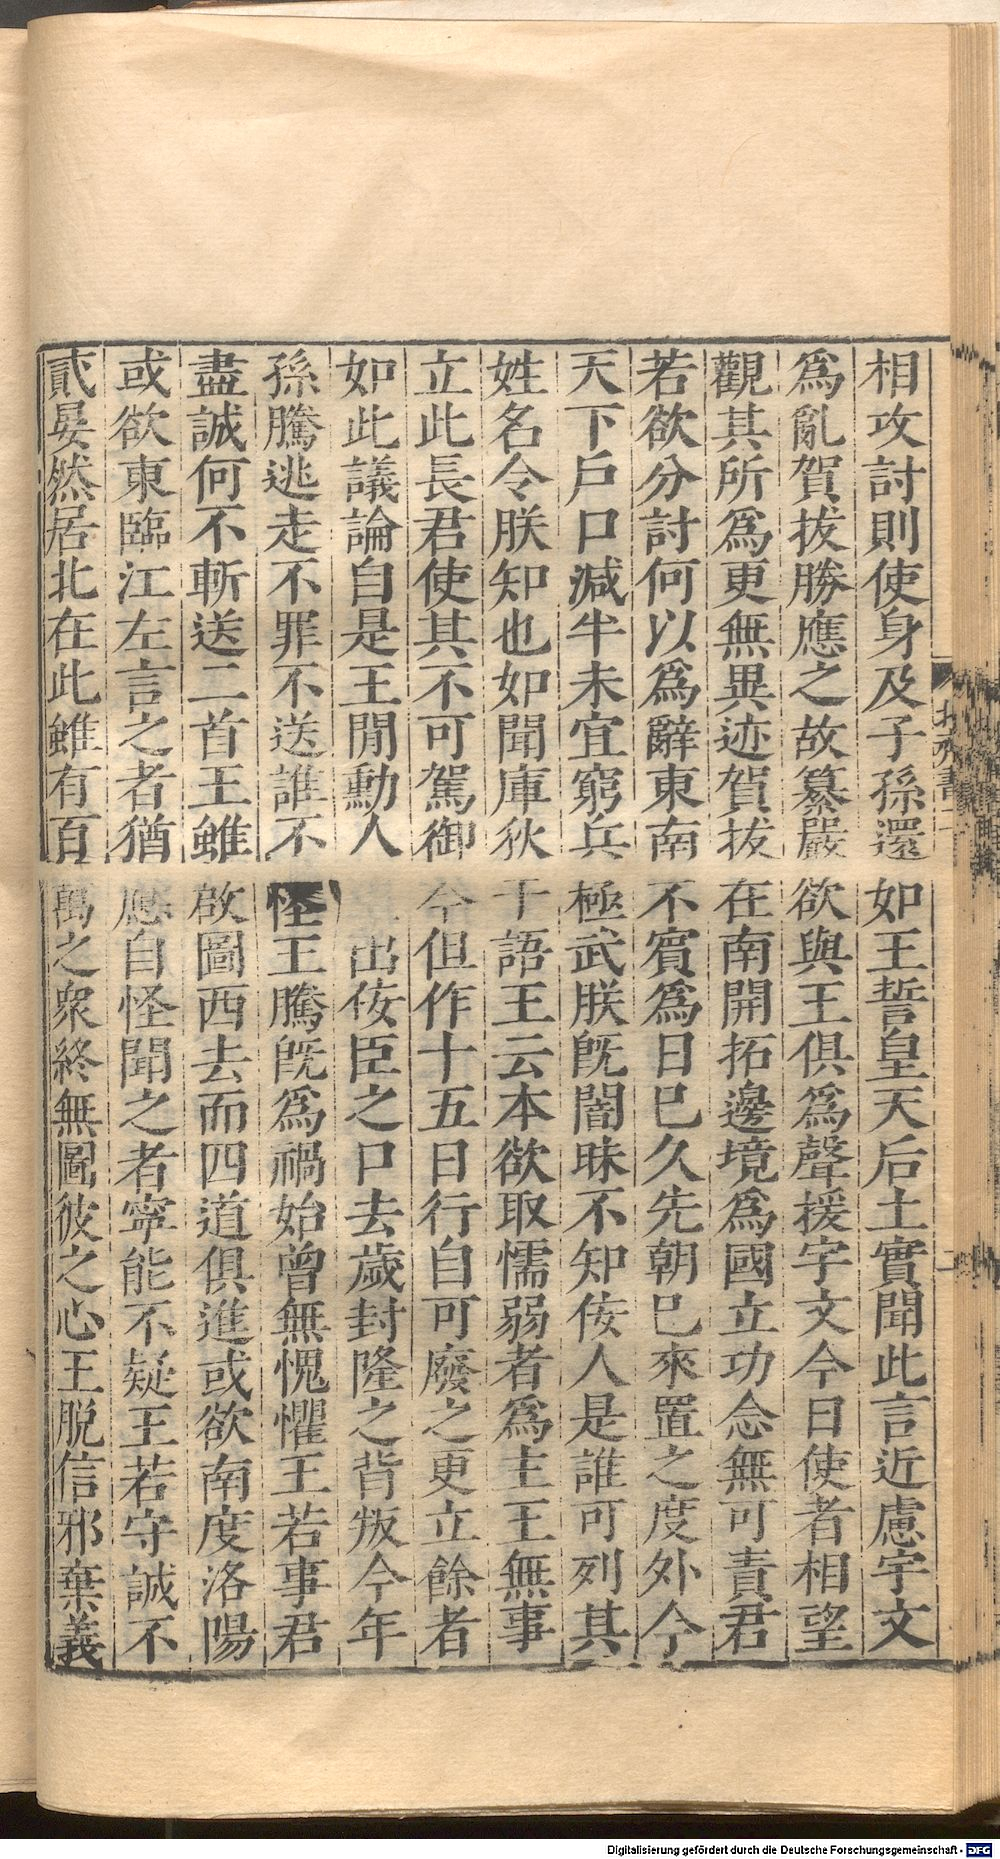 相攻討則使身及子孫還如王誓皇天后土實聞此言近慮宇文
爲亂賀拔勝應之故纂嚴欲與王俱爲聲援宇文今日使者相望
觀其所爲更無異迹賀拔在南開拓邊境爲國立功念無可責君
若欲分討何以爲辭東南不賓爲日已久先朝已來置之度外今
天下戶口減半未宜窮兵極武朕旣闇昧不知佞人是誰可列其
姓名令朕知也如聞庫狄干語王云本欲取懦弱者爲主王無事
立此長君使其不可駕御今但作十五日行自可廢之更立餘者
如此議論自是王閒勳人出佞臣之口去歲封隆之背叛今年
孫騰逃走不罪不送誰不怪王騰旣爲禍始曾無愧懼王若事君
盡誠何不斬送二首王雖啟圖西去而四道俱進或欲南度洛陽
或欲東臨江左言之者猶應自怪聞之者寧能不疑王若守誠不
貳晏然居北在此雖有百萬之衆終無圖彼之心王脫信邪棄義
北齊書二
二
Digitalisierung gefördert durch die Deutsche Forschungsgemeinschaft - DFG